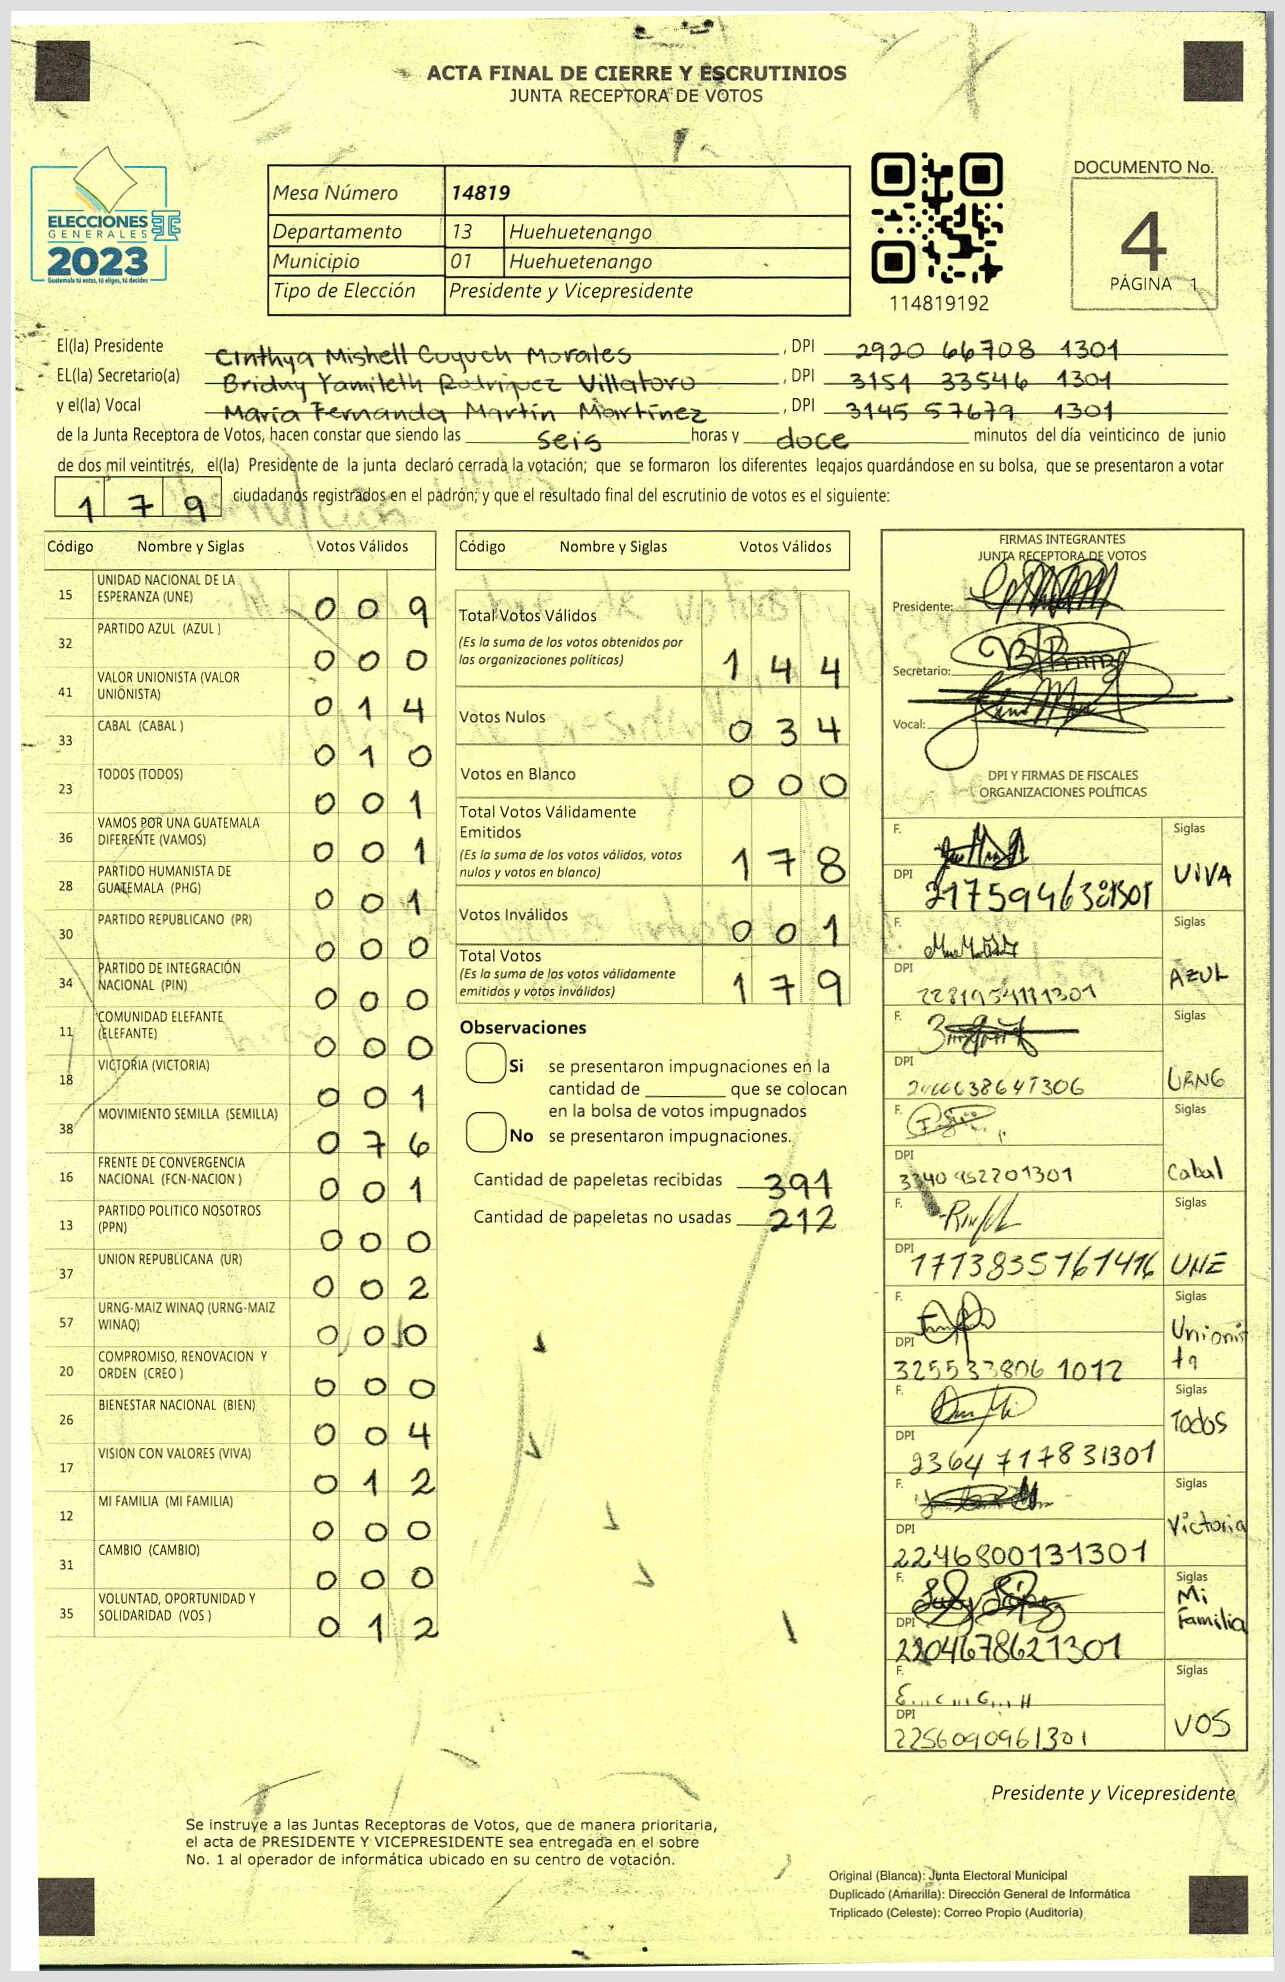 ACTA FINAL DE CIERRE Y ESCRUTINIOS
JUNTA RECEPTORA DE VOTOS
ELECCIONES
GENERALES
2023
Guatemala tú votas, tú eliges, tú decides
Mesa Número 14819
Departamento 13 Huehuetenango
Municipio 01 Huehuetenango
Tipo de Elección Presidente y Vicepresidente
114819192
DOCUMENTO No.
4
PÁGINA 1
El(la) Presidente Cinthya Mishell Cuyuch Morales, DPI 2920 66708 1301
EL(la) Secretario(a) Bridny Yamileth Rodriguez Villatoro, DPI 3151 33546 1301
y el(la) Vocal María Fernanda Martín Martínez, DPI 3145 57679 1301
de la Junta Receptora de Votos, hacen constar que siendo las seis horas y doce minutos del día veinticinco de junio
de dos mil veintitrés, el(la) Presidente de la junta declaró cerrada la votación; que se formaron los diferentes legajos guardándose en su bolsa, que se presentaron a votar
179 ciudadanos registrados en el padrón; y que el resultado final del escrutinio de votos es el siguiente:
Código Nombre y Siglas Votos Válidos
15 UNIDAD NACIONAL DE LA ESPERANZA (UNE) 009
32 PARTIDO AZUL (AZUL ) 000
41 VALOR UNIONISTA (VALOR UNIONISTA) 014
33 CABAL (CABAL ) 010
23 TODOS (TODOS) 001
36 VAMOS POR UNA GUATEMALA DIFERENTE (VAMOS) 001
28 PARTIDO HUMANISTA DE GUATEMALA (PHG) 001
30 PARTIDO REPUBLICANO (PR) 000
34 PARTIDO DE INTEGRACIÓN NACIONAL (PIN) 000
11 COMUNIDAD ELEFANTE (ELEFANTE) 000
18 VICTORIA (VICTORIA) 001
38 MOVIMIENTO SEMILLA (SEMILLA) 076
16 FRENTE DE CONVERGENCIA NACIONAL (FCN-NACION ) 001
13 PARTIDO POLITICO NOSOTROS (PPN) 000
37 UNION REPUBLICANA (UR) 002
57 URNG-MAIZ WINAQ (URNG-MAIZ WINAQ) 000
20 COMPROMISO, RENOVACION Y ORDEN (CREO ) 000
26 BIENESTAR NACIONAL (BIEN) 004
17 VISION CON VALORES (VIVA) 012
12 MI FAMILIA (MI FAMILIA) 000
31 CAMBIO (CAMBIO) 000
35 VOLUNTAD, OPORTUNIDAD Y SOLIDARIDAD (VOS ) 012
Código Nombre y Siglas Votos Válidos
Total Votos Válidos
(Es la suma de los votos obtenidos por
las organizaciones políticas) 144
Votos Nulos 034
Votos en Blanco 000
Total Votos Válidamente
Emitidos
(Es la suma de los votos válidos, votos
nulos y votos en blanco) 178
Votos Inválidos 001
Total Votos
(Es la suma de los votos válidamente
emitidos y votos inválidos) 179
Observaciones
Si se presentaron impugnaciones en la
cantidad de ________ que se colocan
en la bolsa de votos impugnados
No se presentaron impugnaciones.
Cantidad de papeletas recibidas 391
Cantidad de papeletas no usadas 212
FIRMAS INTEGRANTES
JUNTA RECEPTORA DE VOTOS
Presidente:
Secretario:
Vocal:
DPI Y FIRMAS DE FISCALES
ORGANIZACIONES POLÍTICAS
F. Siglas
DPI VIVA
F. Siglas
DPI AZUL
F. Siglas
DPI URNG
F. Siglas
DPI 3340 952201301 Cabal
F. Siglas
DPI 1713835761416 UNE
F. Siglas
DPI 325533806 1012 Unionista
F. Siglas
DPI 2364 717831301 Todos
F. Siglas
DPI 2246800131301 Victoria
F. Siglas
DPI 2204678621301 Mi Familia
F. Siglas
DPI 2256090961301 VOS
Presidente y Vicepresidente
Se instruye a las Juntas Receptoras de Votos, que de manera prioritaria,
el acta de PRESIDENTE Y VICEPRESIDENTE sea entregada en el sobre
No. 1 al operador de informática ubicado en su centro de votación.
Original (Blanca): Junta Electoral Municipal
Duplicado (Amarilla): Dirección General de Informática
Triplicado (Celeste): Correo Propio (Auditoría)